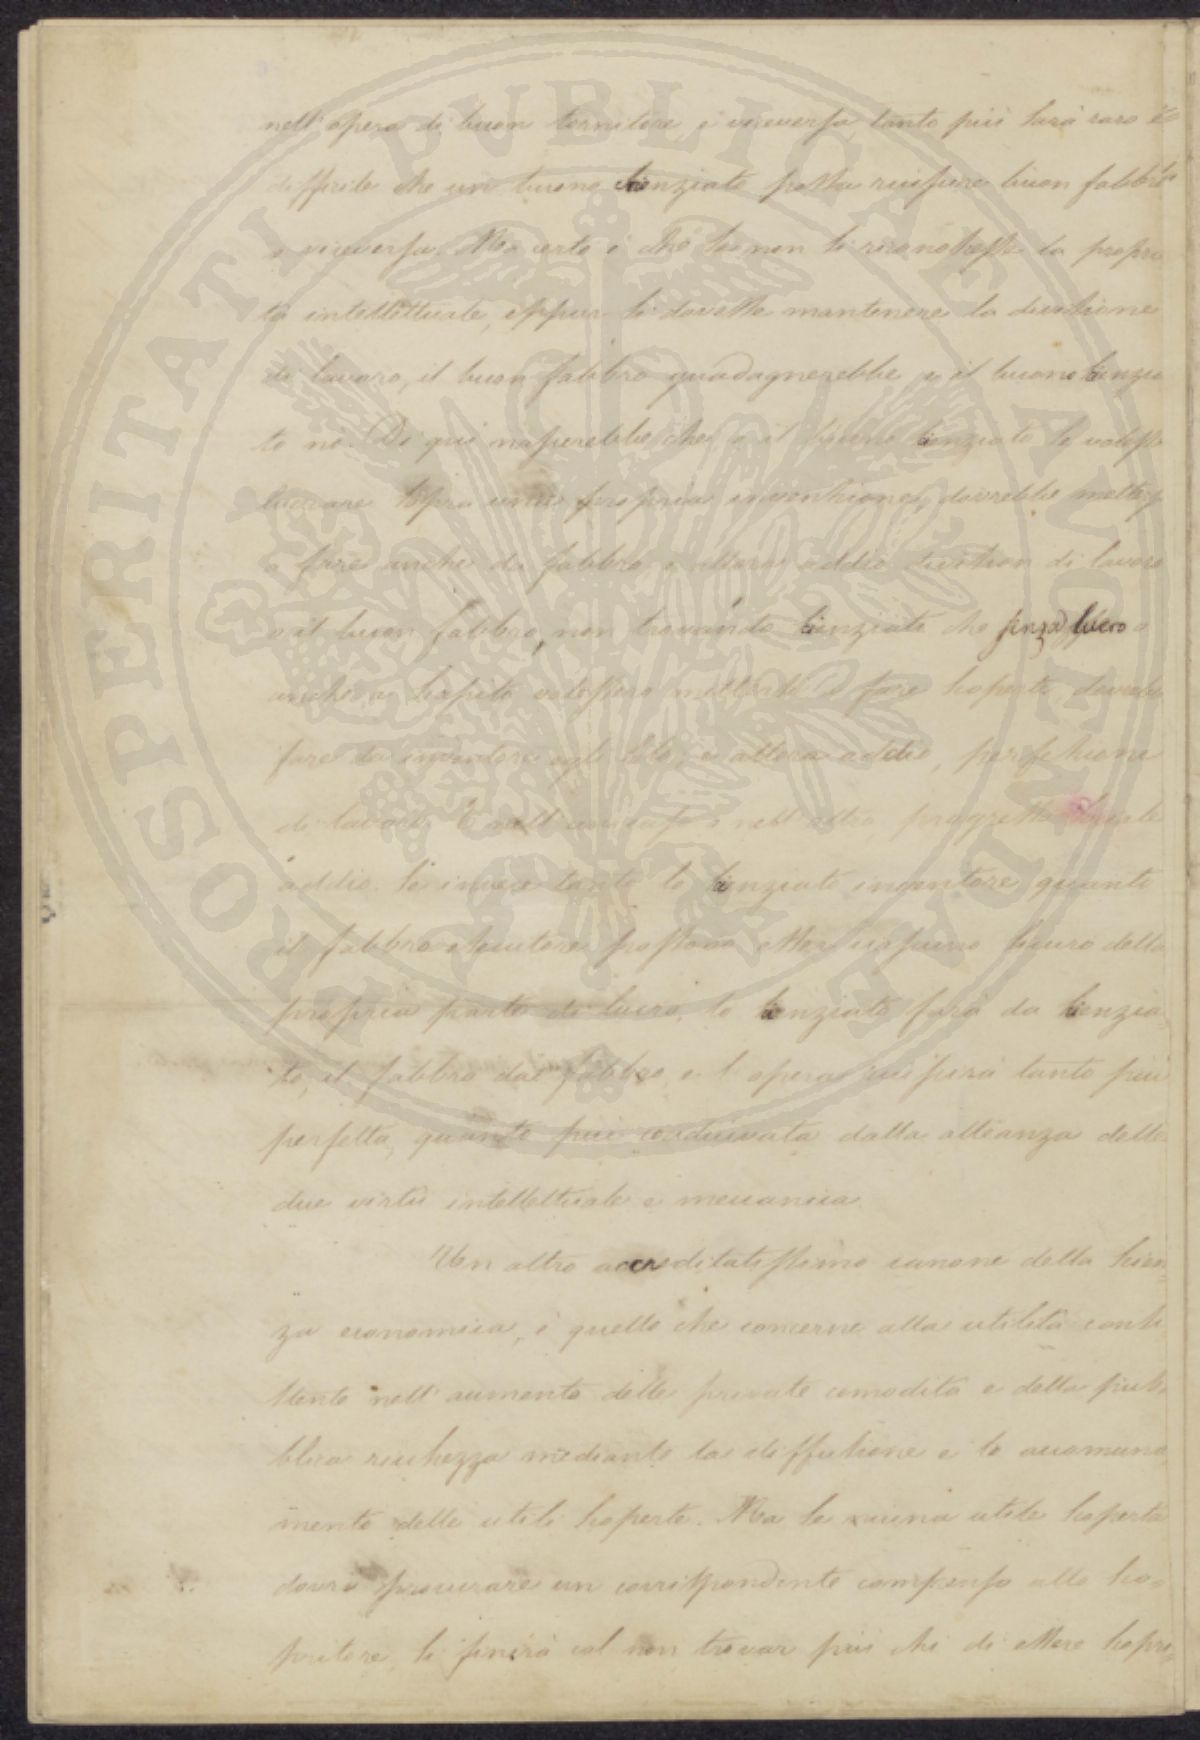 nell'opera di buon tornitore, e viceversa tanto più sarà raro e
difficile che un buono scienziato possa riuscire buon fabbro
e viceversa. Ma certo è che se non si riconoscesse la proprie
tà intellettuale, eppur si dovesse mantenere la divisione
di lavoro, il buon fabbro guadagnerebbe e il buono scienzia
to no. Di qui nascerebbe che o il buono scienziato se volesse
lucrare sopra una propria invenzione, dovrebbe mettersi
a fare anche da fabbro, e allora addio division di lavoro
o il buon fabbro, non trovando scienziati che senza lucro o
anche a scapito volessero mettersi a fare scoperte, dovrebbe
fare da inventore egli solo, e allora addio, perfezione
di lavoro. E nell'un caso e nell'altro, progresso sociale
addio. Se invece tanto lo scienziato inventore quanto
il fabbro esecutore possono esser ciascuno sicuro della
propria parte di lucro, lo scienziato farà da scienzia
to, il fabbro da fabbro, e l'opera riuscirà tanto più
perfetta, quanto più coadiuvata dalla alleanza delle
due virtù intellettuale e meccanica.
Un altro accreditatissimo canone della scien-
za economica, è quello che concerne alla utilità consi
stente nell'aumento delle private comodità e della pub-
blica ricchezza mediante la diffusione e lo accomuna
mento delle utili scoperte. Ma se niuna utile scoperta
dovrà procurare un corrispondente compenso allo sco-
pritore, si finirà col non trovar più chi di esser scopri-
PROSPERITATI PVBLICAE AVGENDAE